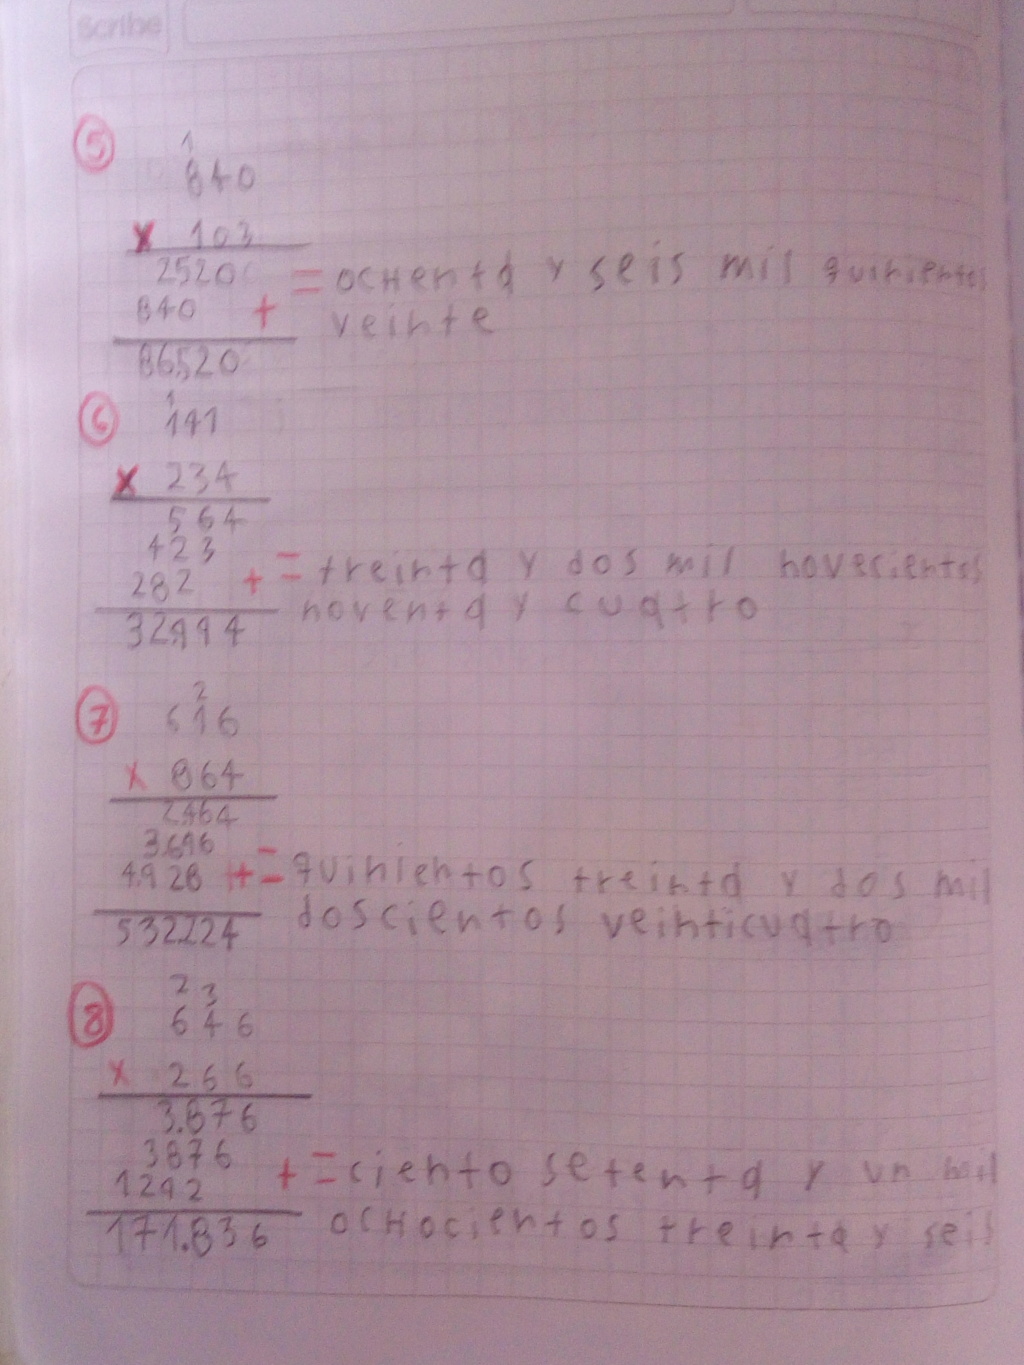 Scribe
5
1
840
x 103
2520 = ochenta y seis mil quinientos
840 + veinte
86520
6
1
141
x 234
564
423
282 + = treinta y dos mil novecientos
32994 noventa y cuatro
7
2
616
x 864
2.464
3.696
4.928 + = quinientos treinta y dos mil
532224 doscientos veinticuatro
8
2 3
646
x 266
3.876
3876
1292 + = ciento setenta y un mil
171.836 ochocientos treinta y seis